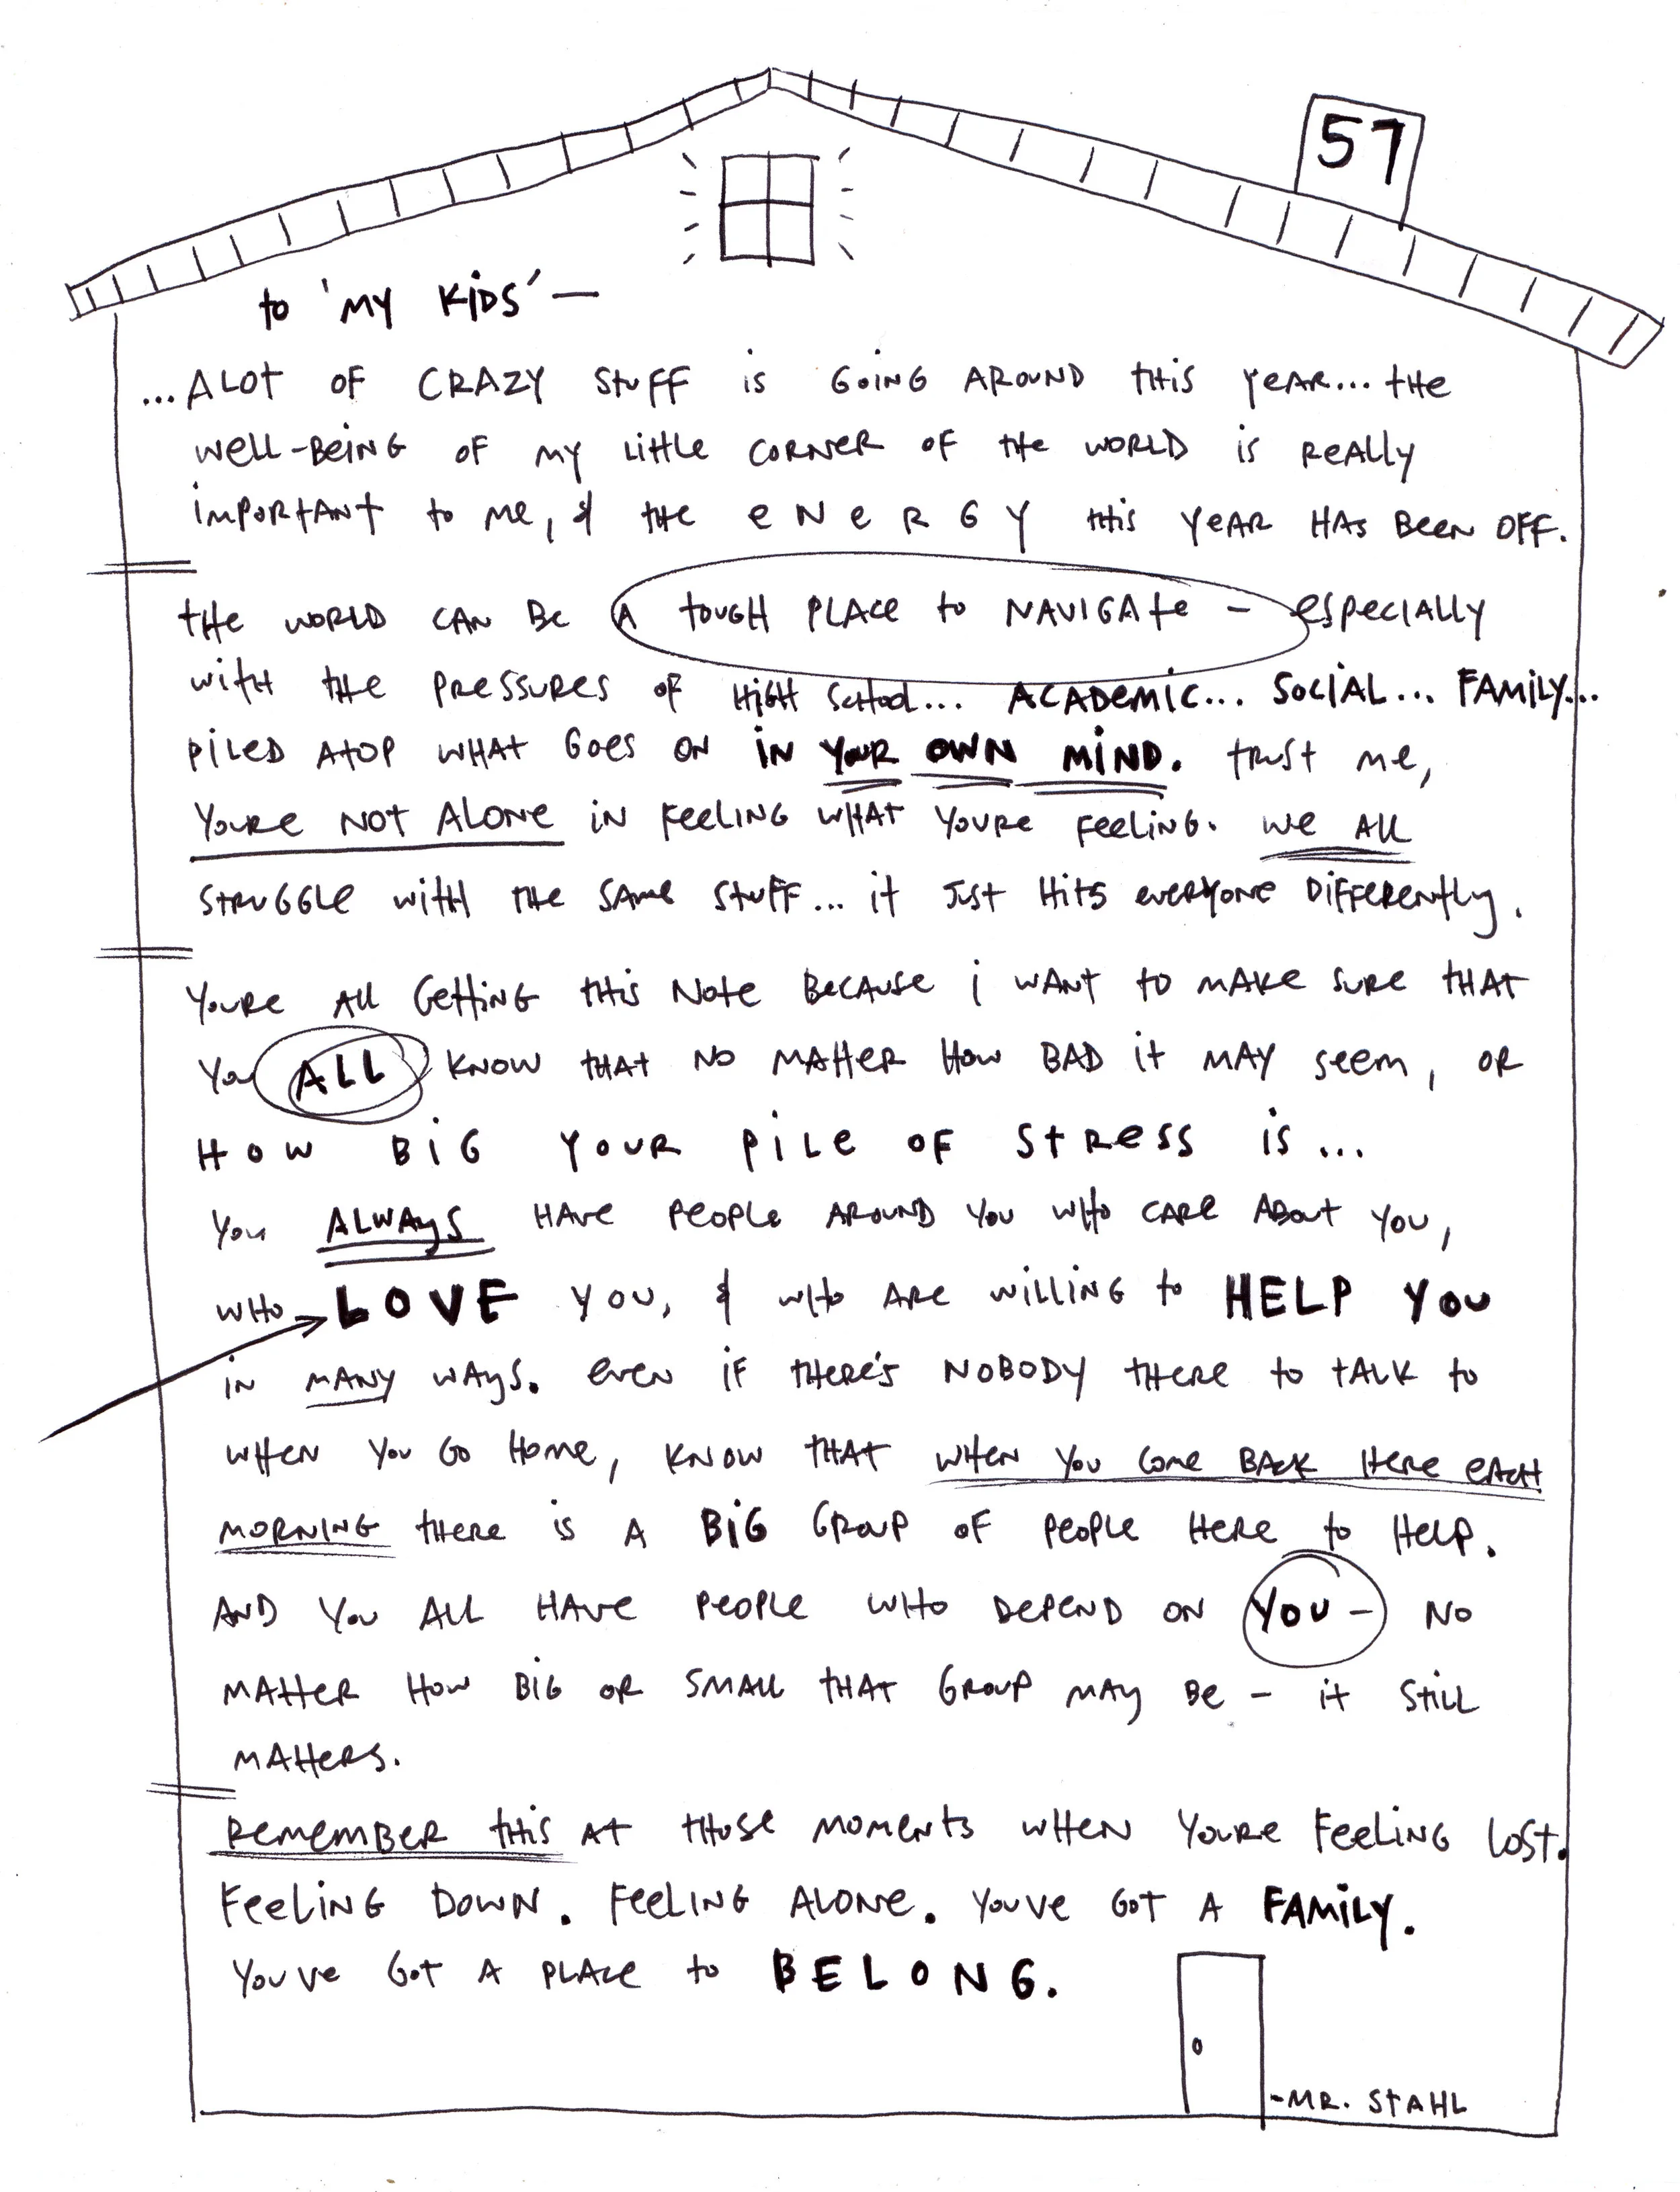 57
to 'MY KiDS' —
...ALOT OF CRAZY StuFF is GOiNG AROUND tHis YeAR... tHe
well-BeiNG OF MY Little CORNER OF tHe WORLD is ReALLY
iMPORtANt to Me, & tHe eNeRGY tHis YeAR HAs BeeN OFF.
tHe WORLD CAN Be A tOUGH PLACE to NAViGAte – especiALLY
witH tHe PRESSURES OF HiGH ScHool... ACADemiC... SOCiAL... FAMiLY...
PiLED AtOP WHAt Goes ON iN YOUR OWN MiND. tRust Me,
YouRe NOt ALONe iN FeeLiNG WHAt YOURe FeeLiNG. We ALL
StRuGGLe WitH tHe SAMe StuFF... it Just Hits eveRYONe DiFFeReNtly.
YouRe ALL GettiNG tHis Note BecAuse i WANt to MAKe SuRe tHAt
You ALL KNOW tHAt NO MAtteR HOW BAD it MAY SeeM, OR
HOW BiG YOUR PiLe OF StResS is...
You ALWAYS HAve PeOPLe AROUND YOU WHO CARe ABOut YOU,
WHO LOVE YOU, & WHO ARe WiLLiNG to HELP YOU
iN MANY WAYS. eveN iF tHeRe's NOBODY tHeRe to tALK to
WHeN YOu GO HOMe, KNOW tHAt WHeN YOu COMe BACK HeRe eACH
MORNiNG tHeRe is A BiG GROuP OF PeOPLe HeRe to HeLP.
AND YOu ALL HAve PeOPLe WHO DePeND ON YOU – NO
MAtteR HOW BiG OR SMALL tHAt GROuP MAY Be – it StiLL
MAtteRS.
ReMeMBeR tHis At tHOse MOMeNts WHeN YOuRe FeeLiNG LOSt.
FeeLiNG DOWN. FeeLiNG ALONe. YOuVe GOt A FAMiLY.
YOuVe GOt A PLACe to BELONG.
-MR. StAHL